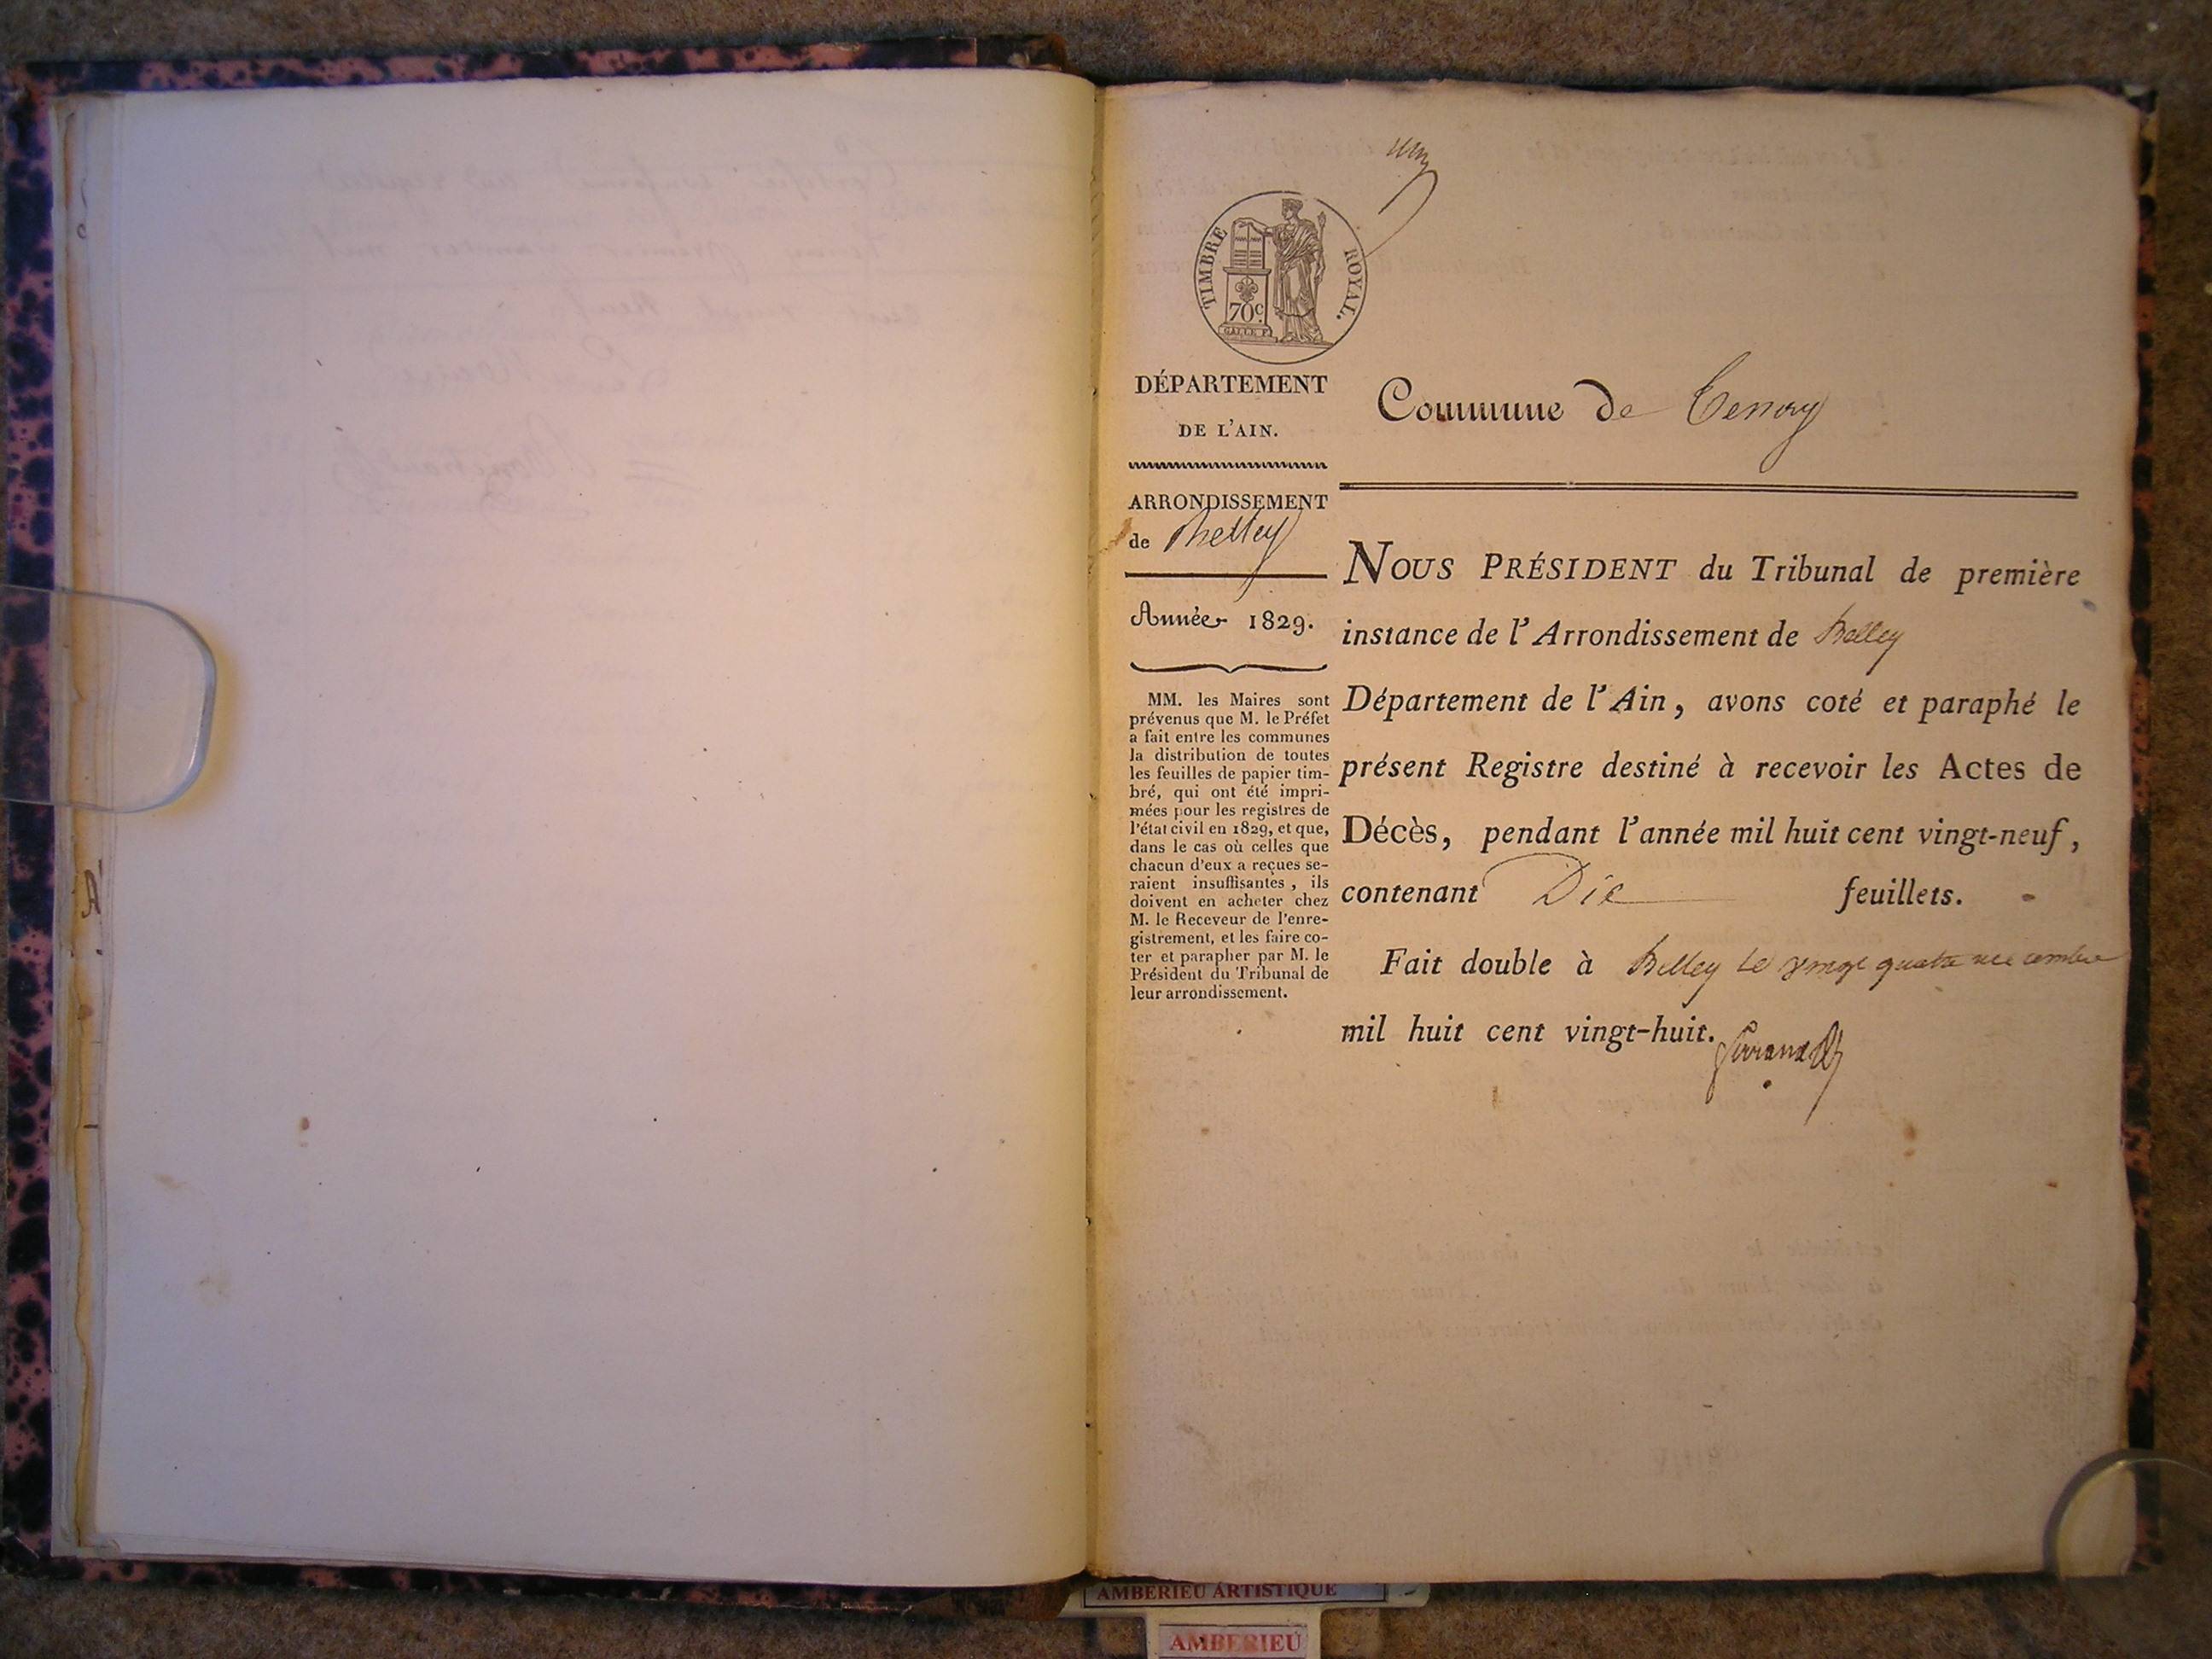 TIMBRE ROYAL.
70c.
DÉPARTEMENT
DE L'AIN.
ARRONDISSEMENT
de Belley
Année 1829.
MM. les Maires sont
prévenus que M. le Préfet
a fait entre les communes
la distribution de toutes
les feuilles de papier tim-
bré, qui ont été impri-
mées pour les registres de
l'état civil en 1829, et que,
dans le cas où celles que
chacun d'eux a reçues se-
raient insuffisantes, ils
doivent en acheter chez
M. le Receveur de l'enre-
gistrement, et les faire co-
ter et parapher par M. le
Président du Tribunal de
leur arrondissement.
Commune de Tenay
NOUS PRÉSIDENT du Tribunal de première
instance de l'Arrondissement de Belley
Département de l'Ain, avons coté et paraphé le
présent Registre destiné à recevoir les Actes de
Décès, pendant l'année mil huit cent vingt-neuf,
contenant Dix feuillets.
Fait double à Belley le vingt quatre
mil huit cent vingt-huit.
AMBERIEU ARTISTIQUE
AMBERIEU